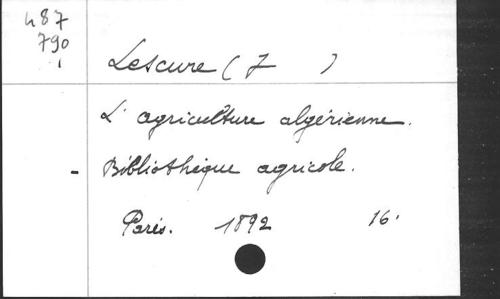 487
790
1
Lescure (J )
L'agriculture algérienne.
- Bibliothèque agricole.
Paris. 1892 16.